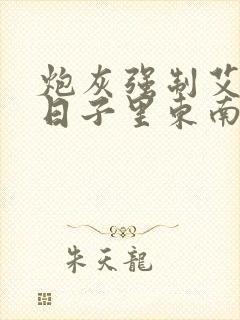 炮灰强制艾
日子里东南
朱天龍